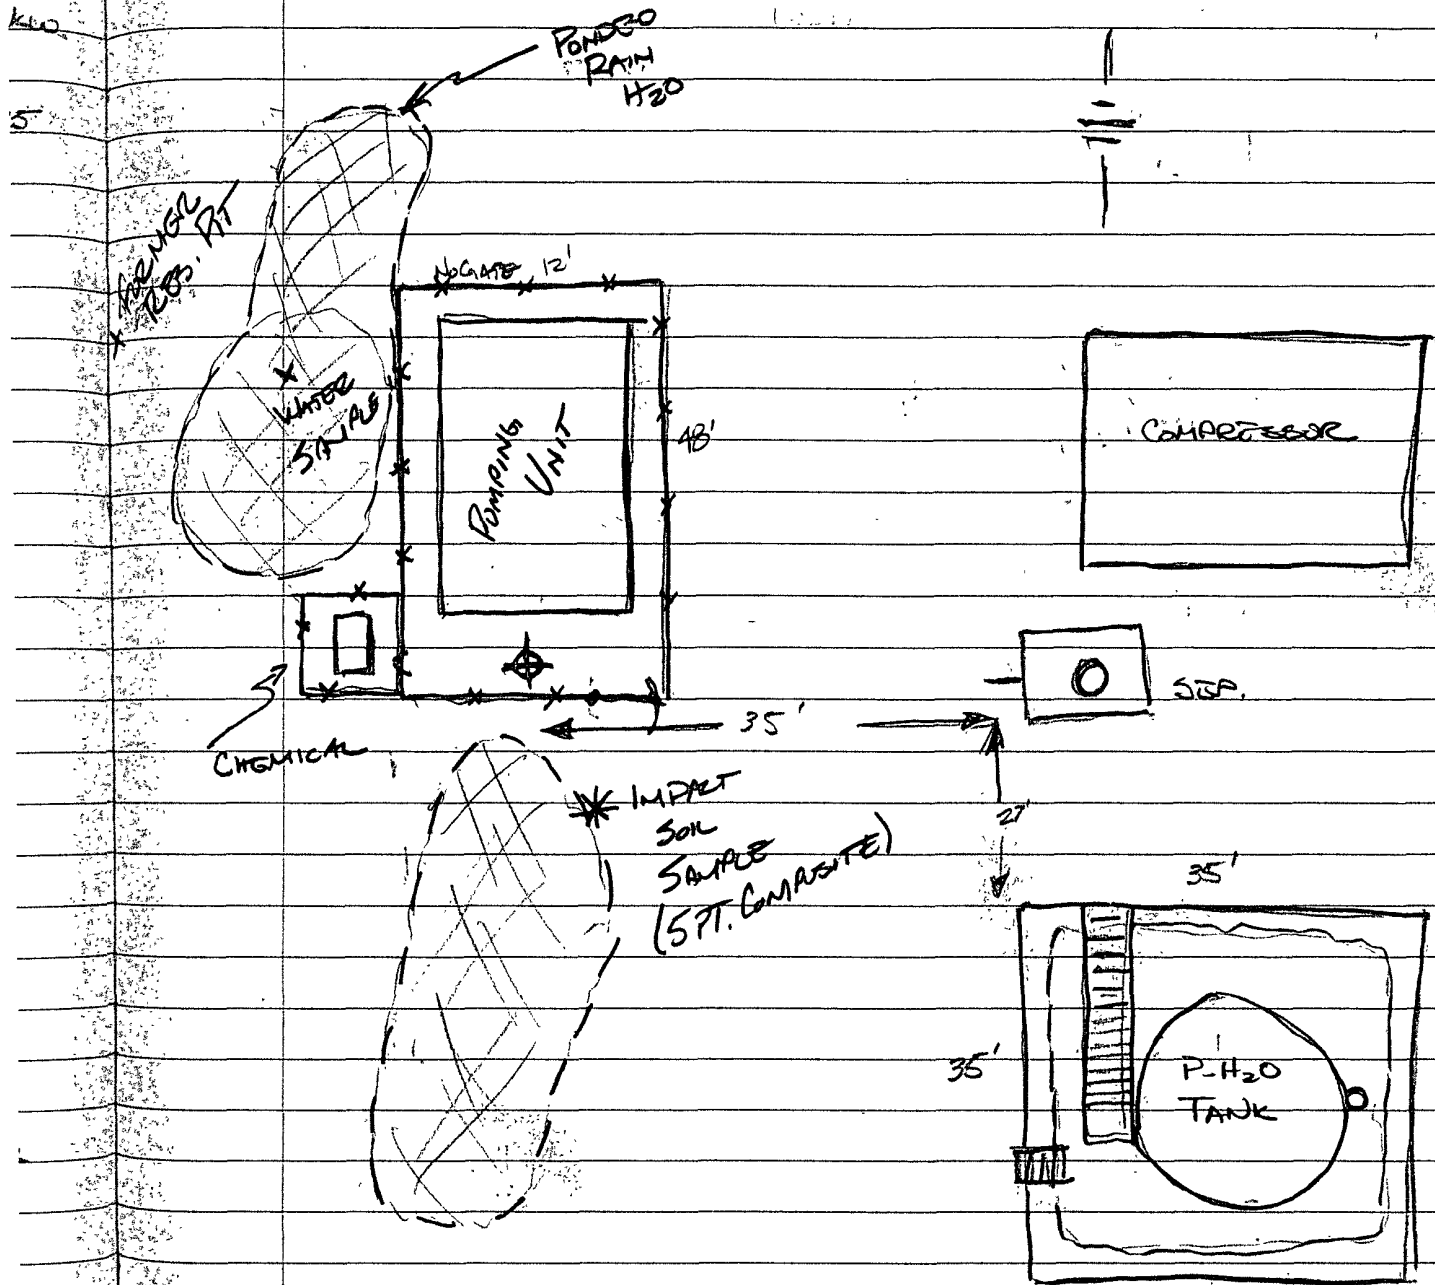 5
PONDED
RAIN
H2O
FORMER
RES. PIT
NO GATE 12'
WATER
SAMPLE
PUMPING
UNIT
48'
COMPRESSOR
SEP.
35'
CHEMICAL
27'
IMPACT
SOIL
SAMPLE
(5 PT. COMPOSITE)
35'
35'
P-H2O
TANK